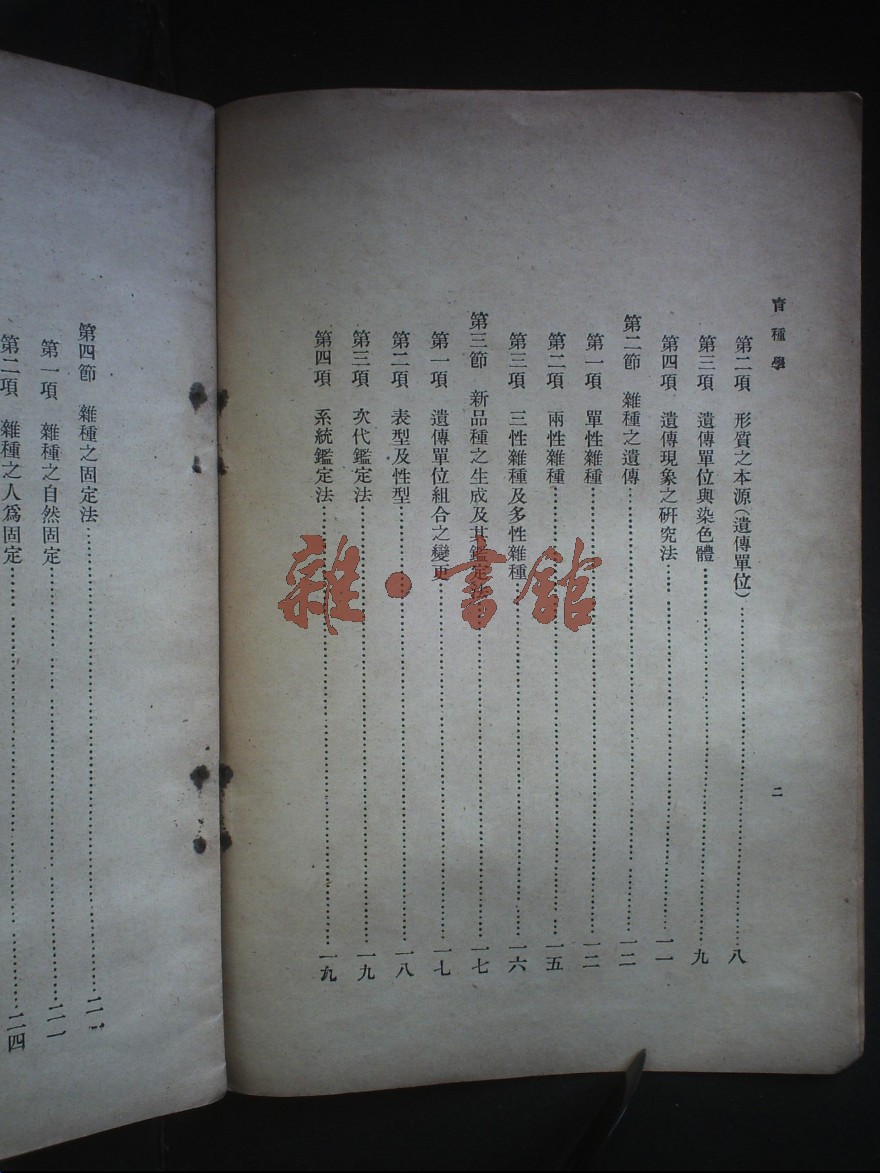 育種學
二
第二項 形質之本源(遺傳單位)……八
第三項 遺傳單位與染色體……九
第四項 遺傳現象之研究法……一一
第二節 雜種之遺傳……一二
第一項 單性雜種……一二
第二項 兩性雜種……一五
第三項 三性雜種及多性雜種……一六
第三節 新品種之生成及其鑑定法……一七
第一項 遺傳單位組合之變更……一七
第二項 表型及性型……一八
第三項 次代鑑定法……一九
第四項 系統鑑定法……一九
第四節 雜種之固定法……二一
第一項 雜種之自然固定……二一
第二項 雜種之人爲固定……二四
雜·書館